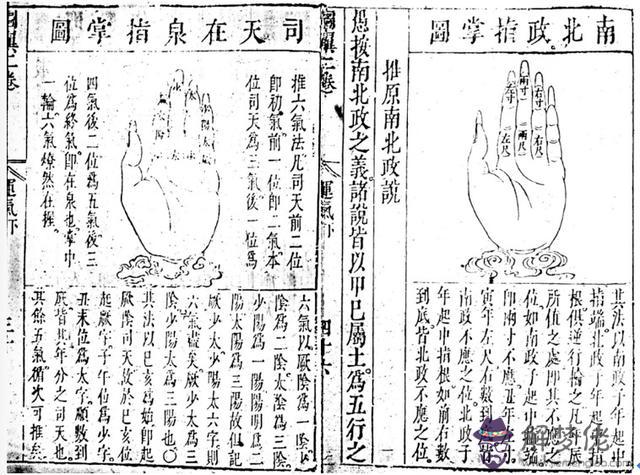 南北政指掌圖
左寸
兩寸
右寸
左尺
兩尺
右尺
其法以南政子年起中
指端北政子年起中指
根俱逆行輪之凡年辰
所值之處即其不應之
位如南政子起中指端
即兩寸不應丑年
寅年左尺右數到底皆
南政不應之位北政子
年起中指根如前右數
到底皆北政不應之位
推原南北政說
愚按南北政之義諸說皆以甲己屬土為五行之
圖翼二卷
運氣下
四十六
司天在泉指掌圖
推六氣法凡司天前二位
即初氣前一位即二氣本
位司天為三氣後一位為
四氣後二位為五氣後三
位為終氣即在泉也掌中
一輪六氣燎然在握
六氣以厥陰為一陰少
陰為二陰太陰為三陰
少陽為一陽陽明為二
陽太陽為三陽故但記
厥少太少陽太六字則
六氣盡矣厥少太即三
陰少陽太即三陽也
其法以巳亥為始即起
厥陰司天故於巳亥位
起厥字子午位為少字
丑未位為太字順數到
底皆其年分之司天也
其餘五氣循次可推矣
圖翼二卷
運氣下